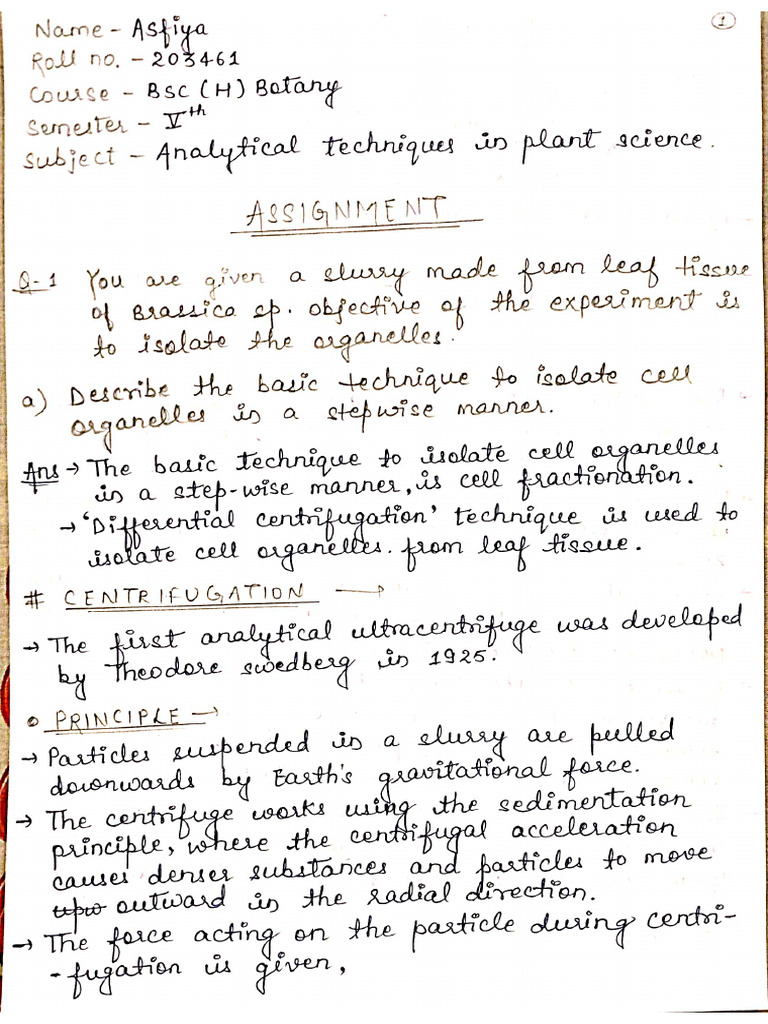 1
Name - Asfiya
Roll no. - 203461
Course - BSC (H) Botany
Semester - Vth
Subject - Analytical techniques in plant science.
ASSIGNMENT
Q-1 You are given a slurry made from leaf tissue
of Brassica sp. objective of the experiment is
to isolate the organelles.
a) Describe the basic technique to isolate cell
organelles in a stepwise manner.
Ans → The basic technique to isolate cell organelles
in a step-wise manner, is cell fractionation.
→ 'Differential centrifugation' technique is used to
isolate cell organelles. from leaf tissue.
# CENTRIFUGATION →
→ The first analytical ultracentrifuge was developed
by Theodore swedberg in 1925.
• PRINCIPLE →
→ Particles suspended in a slurry are pulled
downwards by Earth's gravitational force.
→ The centrifuge works using the sedimentation
principle, where the centrifugal acceleration
causes denser substances and particles to move
upw outward in the radial direction.
→ The force acting on the particle during centri-
-fugation is given,